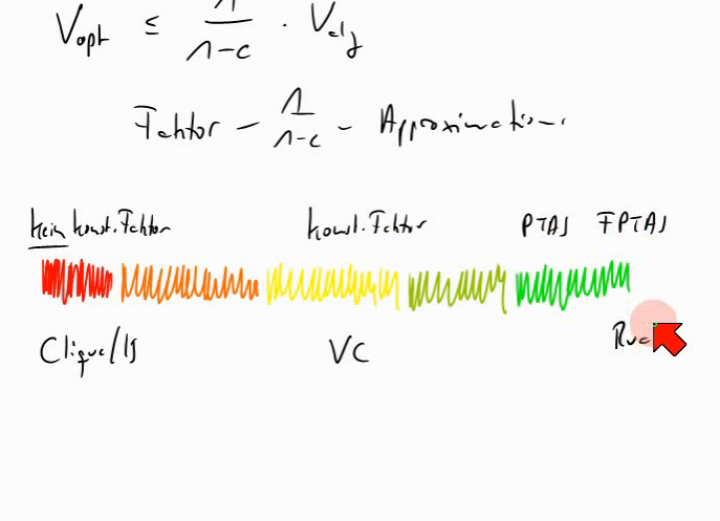 V_opt ≤ 1/(1-c) · V_alg
Faktor - 1/(1-c) - Approximation.
kein konst. Faktor konst. Faktor PTAS FPTAS
Clique/IS VC Ruc